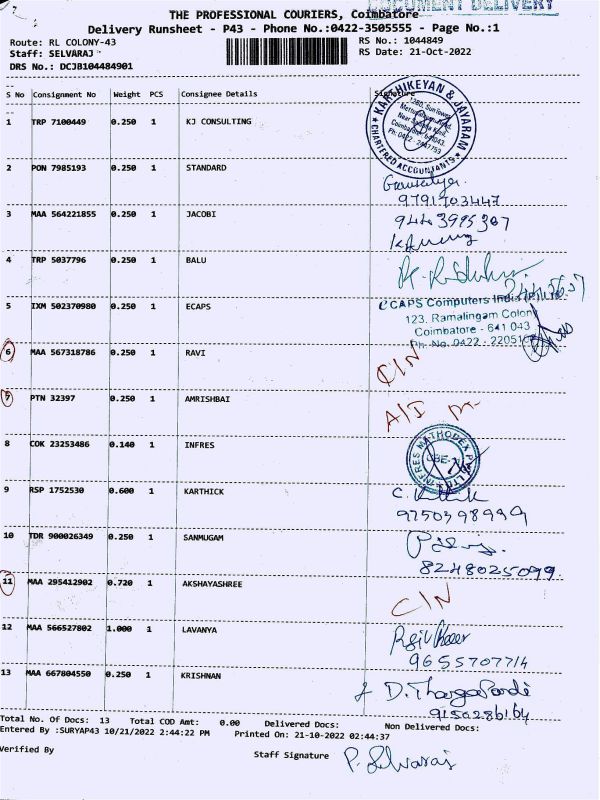 DOCUMENT DELIVERY
THE PROFESSIONAL COURIERS, Coimbatore
Delivery Runsheet - P43 - Phone No.:0422-3505555 - Page No.:1
Route: RL COLONY-43 RS No.: 1044849
Staff: SELVARAJ RS Date: 21-Oct-2022
DRS No.: DCJB104484901
S No Consignment No Weight PCS Consignee Details Signature
1 TRP 7100449 0.250 1 KJ CONSULTING
KARTHIKEYAN & JAYARAM
CHARTERED ACCOUNTANTS
Coimbatore
2 PON 7985193 0.250 1 STANDARD
9791703447
3 MAA 564221855 0.250 1 JACOBI
9443995307
4 TRP 5037796 0.250 1 BALU
5 IXM 502370980 0.250 1 ECAPS
eCAPS Computers India (P) Ltd
123, Ramalingam Colony
Coimbatore - 641 043
Ph. No. 0422 - 220510
6 MAA 567318786 0.250 1 RAVI
C/N
7 PTN 32397 0.250 1 AMRISHBAI
A/I
8 COK 23253486 0.140 1 INFRES
INFRES METHODEX
CBE-
9 RSP 1752530 0.600 1 KARTHICK
9750398999
10 TDR 900026349 0.250 1 SANMUGAM
8248025099
11 MAA 295412902 0.720 1 AKSHAYASHREE
C/N
12 MAA 566527802 1.000 1 LAVANYA
9655707714
13 MAA 667804550 0.250 1 KRISHNAN
9150286164
Total No. Of Docs: 13 Total COD Amt: 0.00 Delivered Docs: Non Delivered Docs:
Entered By :SURYAP43 10/21/2022 2:44:22 PM Printed On: 21-10-2022 02:44:37
Verified By Staff Signature P. Selvaraj